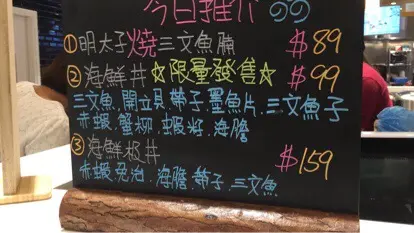 今日推介
①明太子燒三文魚腩 $89
②海鮮丼☆限量發售☆ $99
三文魚.開立貝.帶子.墨魚片.三文魚子
赤蝦.蟹柳.蝦籽.海膽
③海鮮极丼 $159
赤蝦.免治.海膽.帶子.三文魚